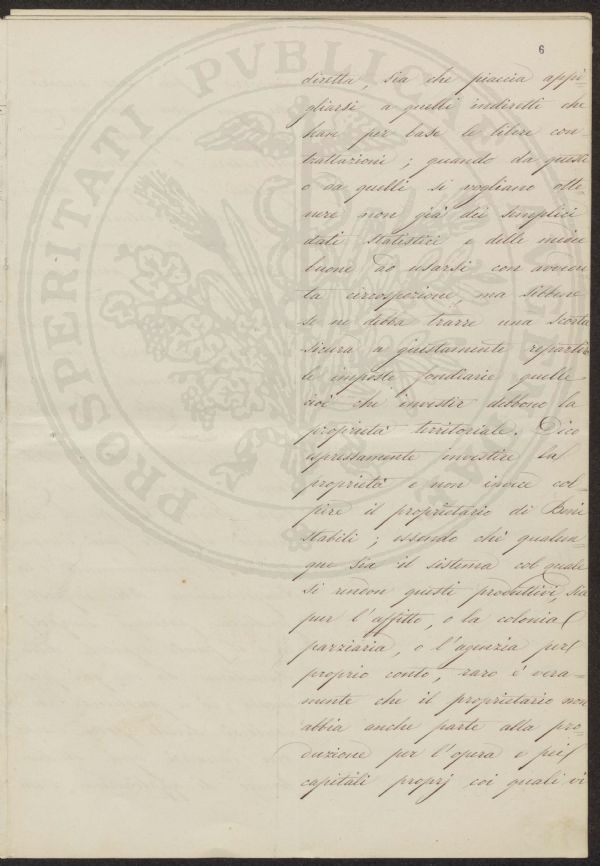 6
diretta, sia che piaccia appi-
gliarsi a quelli indiretti che
han per base le libere con-
trattazioni; quando da questi
o da quelli si vogliano otte-
nere non già dei semplici
dati statistici e delle medie
buone ad usarsi con avvedu
ta circospezione, ma sibbene
se ne debba trarre una scorta
sicura a giustamente repartir
le imposte fondiarie quelle
cioè che investir debbono la
proprietà territoriale. Dico
espressamente investire la
proprietà e non invece col-
pire il proprietario di Beni
stabili; essendo che qualun-
que sia il sistema col quale
si rendon questi produttivi, sia
per l'affitto, o la colonia
parziaria, o l'agenzia per
proprio conto, raro è vera-
mente che il proprietario non
abbia anche parte alla pro-
duzione per l'opera e pei
capitali proprj coi quali vi
PROSPERITATI PVBLICAE